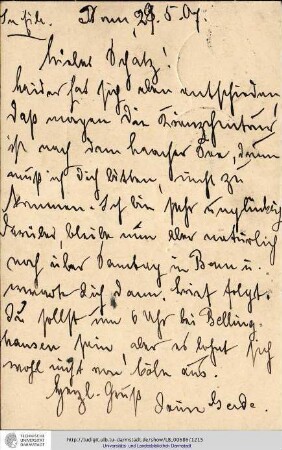 In Eile. Bonn, 23.5.07.
Liebes Schatz!
leider hat sich eben entschieden,
daß morgen die
ist nach dem Laacher See, drum
muß ich dich bitten, nicht zu
kommen. Ich bin sehr unglücklich
darüber, bleibe nun aber natürlich
noch über Samstag in Bonn u.
erwarte dich dann. Brief folgt.
Du sollst um 6 Uhr bei Belling-
hausen sein, aber es lohnt sich
wohl nicht von Cöln aus.
Herzl. Gruß Dein
TECHNISCHE
UNIVERSITÄT
DARMSTADT
http://tudigit.ulb.tu-darmstadt.de/show/
Universitäts- und Landesbibliothek Darmstadt